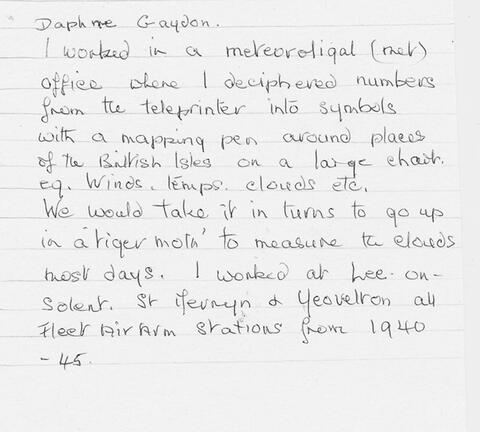 Daphne Gaydon.
I worked in a meteoroligal (met)
office where I deciphered numbers
from the teleprinter into symbols
with a mapping pen around places
of the British Isles on a large chart.
eg. Winds. temps. clouds etc.
We would take it in turns to go up
in a 'tiger moth' to measure the clouds
most days. I worked at Lee-on-
Solent. St Mervyn & Yeovelton all
Fleet Air Arm Stations from 1940
-45.